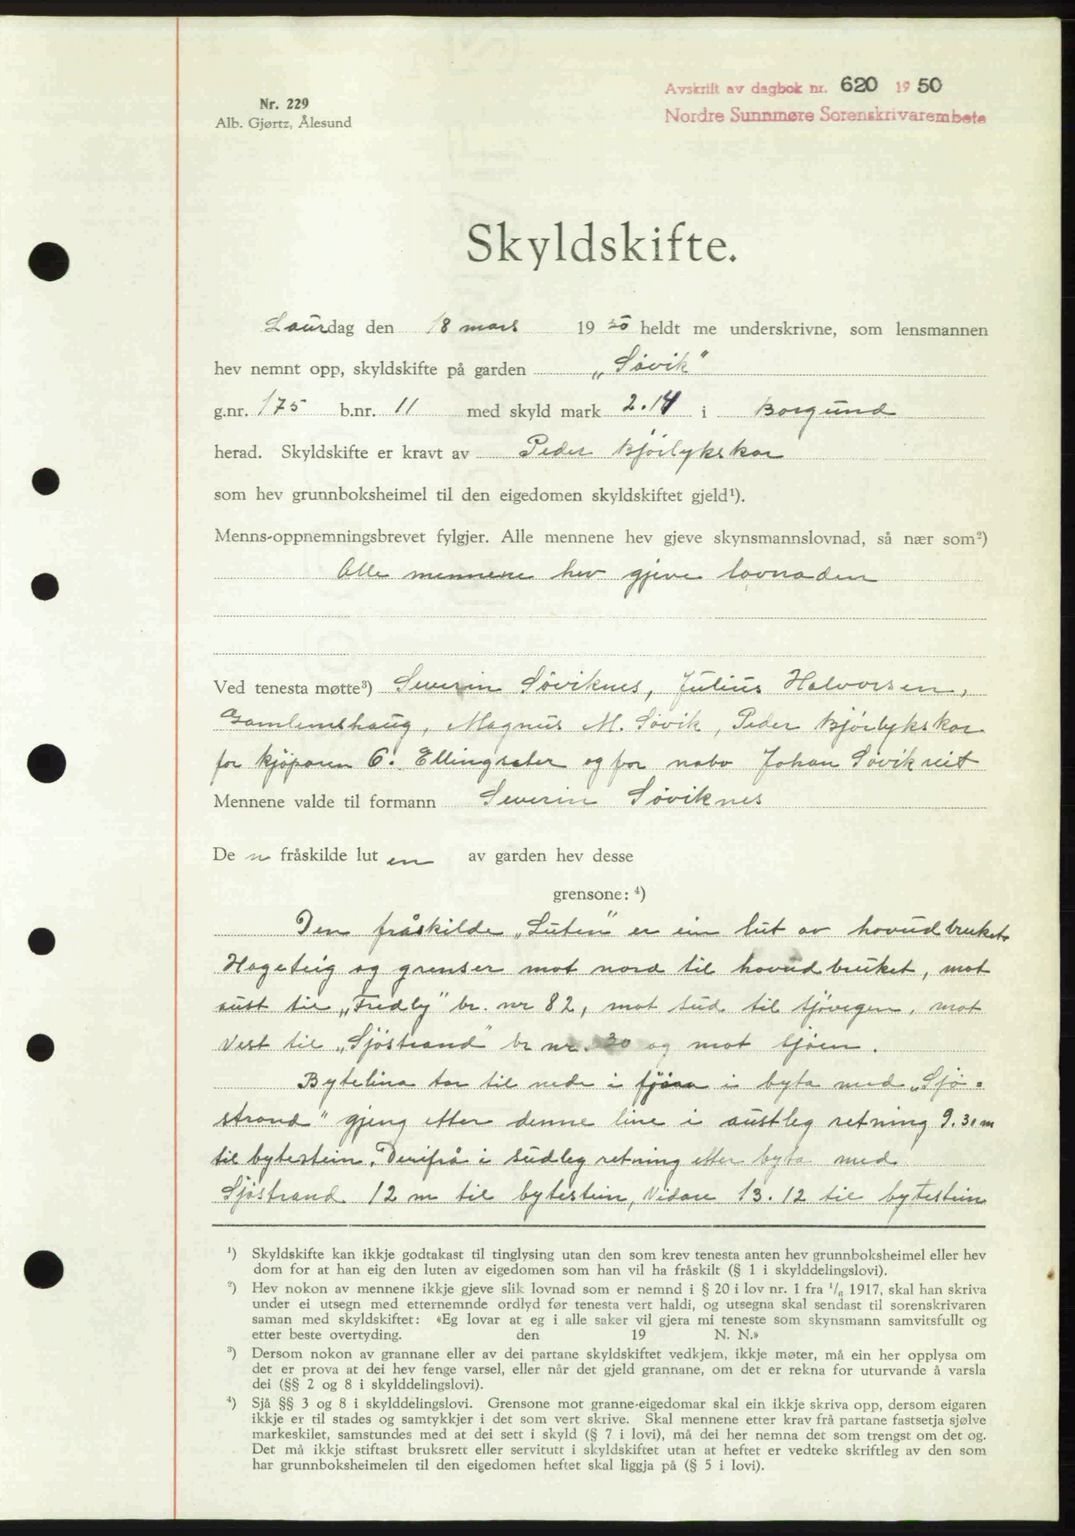 Avskrift av dagbok nr. 620 1950
Nordre Sunnmøre Sorenskrivarembete
Nr. 229
Alb. Gjørtz, Ålesund
Skyldskifte.
Laurdag den 18 mars 1950 heldt me underskrivne, som lensmannen
hev nemnt opp, skyldskifte på garden „Søvik"
g.nr. 175 b.nr. 11 med skyld mark 2.14 i Borgund
herad. Skyldskifte er kravt av Peder Bjørlykskor
som hev grunnboksheimel til den eigedomen skyldskiftet gjeld¹).
Menns-oppnemningsbrevet fylgjer. Alle mennene hev gjeve skynsmannslovnad, så nær som²)
Alle mennene hev gjeve lovnaden
Ved tenesta møtte³) Severin Søviknes, Julius Halvorsen,
Gamlemshaug, Magnus M. Søvik, Peder Bjørlykskor
for kjøparen E. Ellingseter og for nabo Johan Søvikreit
Mennene valde til formann Severin Søviknes
De n fråskilde luten av garden hev desse
grensone: ⁴)
Den fråskilde „Luten" er ein lut av hovudbrukets
Hageteig og grenser mot nord til hovudbruket, mot
aust til „Fredly" br. nr 82, mot sud til sjøvegen, mot
Vest til „Sjöstrand" br nr. 30 og mot sjøen.
Bytelina tar til nede i fjøra i byta med „Sjö-
strand" gjeng etter denne line i austleg retning 9.30 m
til bytestein. Derifrå i sudleg retning etter byta med
Sjöstrand 12 m til bytestein, Vidare 13.12 til bytestein
¹) Skyldskifte kan ikkje godtakast til tinglysing utan den som krev tenesta anten hev grunnboksheimel eller hev
dom for at han eig den luten av eigedomen som han vil ha fråskilt (§ 1 i skylddelingslovi).
²) Hev nokon av mennene ikkje gjeve slik lovnad som er nemnd i § 20 i lov nr. 1 fra ¹/₆ 1917, skal han skriva
under ei utsegn med etternemnde ordlyd før tenesta vert haldi, og utsegna skal sendast til sorenskrivaren
saman med skyldskiftet: «Eg lovar at eg i alle saker vil gjera mi teneste som skynsmann samvitsfullt og
etter beste overtyding. den 19 N. N.»
³) Dersom nokon av grannane eller av dei partane skyldskiftet vedkjem, ikkje møter, må ein her opplysa om
det er prova at dei hev fenge varsel, eller når det gjeld grannane, om det er rekna for uturvande å varsla
dei (§§ 2 og 8 i skylddelingslovi).
⁴) Sjå §§ 3 og 8 i skylddelingslovi. Grensone mot granne-eigedomar skal ein ikkje skriva opp, dersom eigaren
ikkje er til stades og samtykkjer i det som vert skrive. Skal mennene etter krav frå partane fastsetja sjølve
markeskilet, samstundes med at dei sett i skyld (§ 7 i lovi), må dei her nemna det som trengst om det og.
Det må ikkje stiftast bruksrett eller servitutt i skyldskiftet utan at heftet er vedteke skriftleg av den som
har grunnboksheimelen til den eigedomen heftet skal liggja på (§ 5 i lovi).